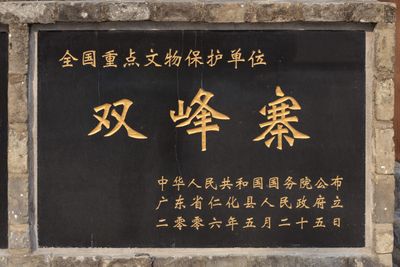 全国重点文物保护单位
双峰寨
中华人民共和国国务院公布
广东省仁化县人民政府立
二零零六年五月二十五日